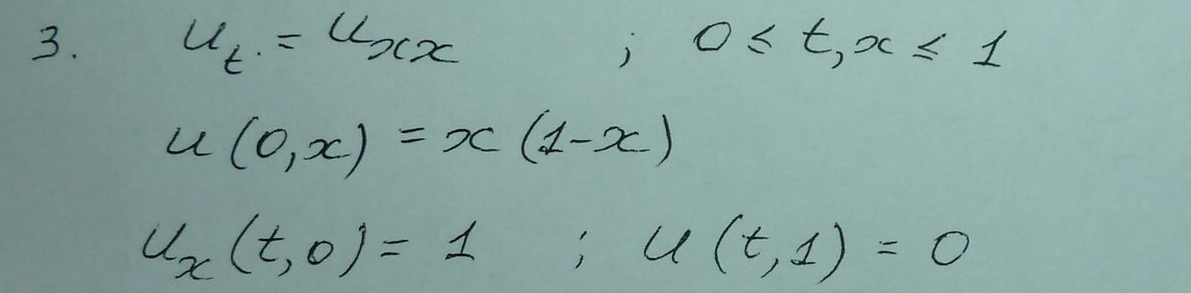 3. u_t = u_xx ; 0 ≤ t, x ≤ 1
u(0,x) = x(1-x)
u_x(t,0) = 1 ; u(t,1) = 0